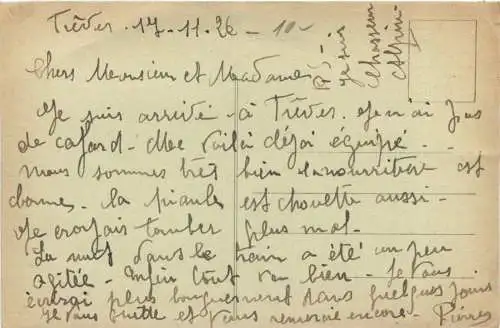 Trèves . 17-11-26 -
Chers Monsieur et Madame
P.S! je suis
chasseur
Alpin
Je suis arrivé à Trèves. Je n'ai pas
de cafard - Me voilà déjà équipé.
nous sommes très bien la nourriture est
bonne. la piaule est chouette aussi -
Je croyais tomber plus mal -
La nuit dans le train a été un peu
agitée - Mais tout va bien - Je vous
écrirai plus longuement dans quelques jours
Je vous quitte et vous remercie encore. Pierre